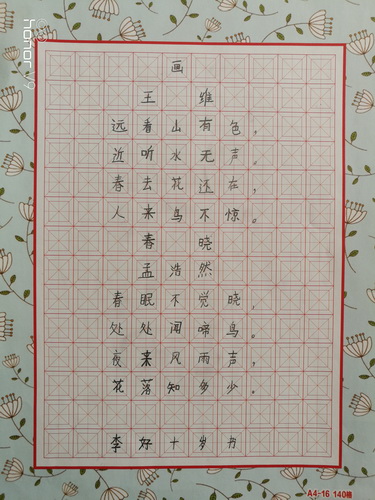 honor V9
画
王维
远看山有色，
近听水无声。
春去花还在，
人来鸟不惊。
春晓
孟浩然
春眠不觉晓，
处处闻啼鸟。
夜来风雨声，
花落知多少。
李好十岁书
A4-16 140格